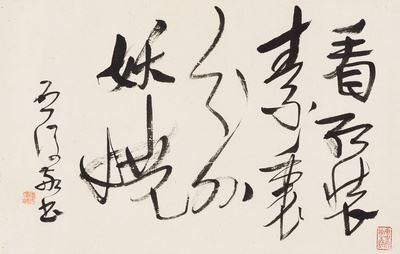 看红装
素裹
分外
妖娆